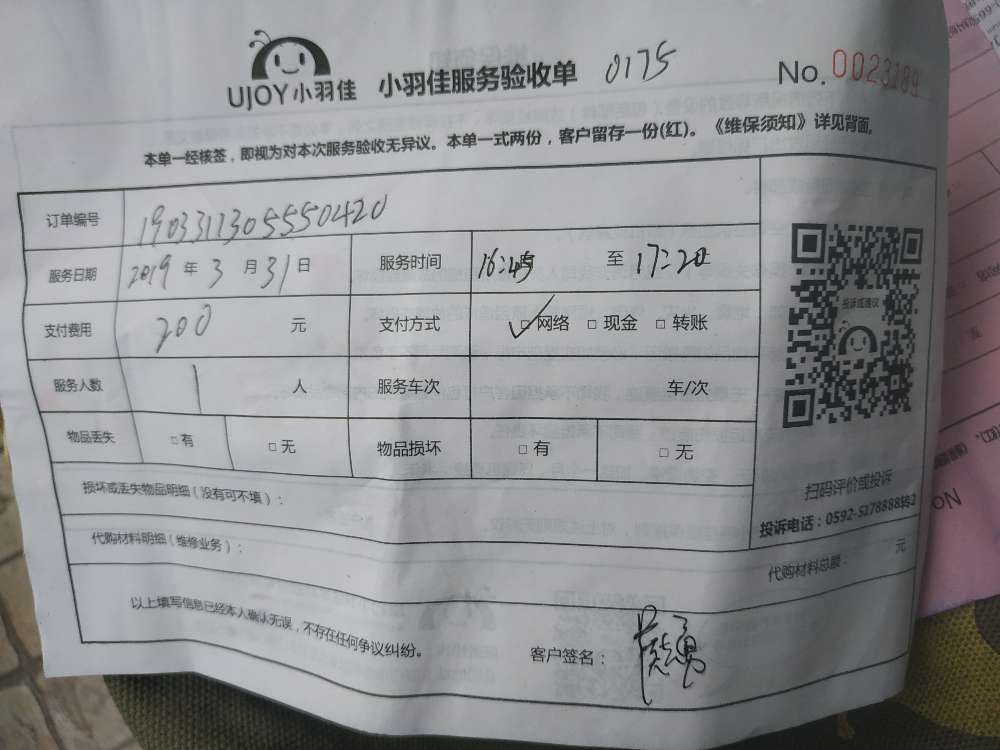 UJOY小羽佳 小羽佳服务验收单 0175 No. 0023289
本单一经核签，即视为对本次服务验收无异议。本单一式两份，客户留存一份(红)。《维保须知》详见背面。
订单编号 1903311305550420
服务日期 2019 年 3 月 31 日 服务时间 16:45 至 17:20
支付费用 200 元 支付方式 ✓□网络 □现金 □转账
服务人数 1 人 服务车次 车/次
物品丢失 □有 □无 物品损坏 □有 □无
投诉或建议
扫码评价或投诉
投诉电话：0592-5178888转2
损坏或丢失物品明细（没有可不填）：
代购材料明细（维修业务）： 代购材料总额： 元
以上填写信息已经本人确认无误，不存在任何争议纠纷。 客户签名：
No